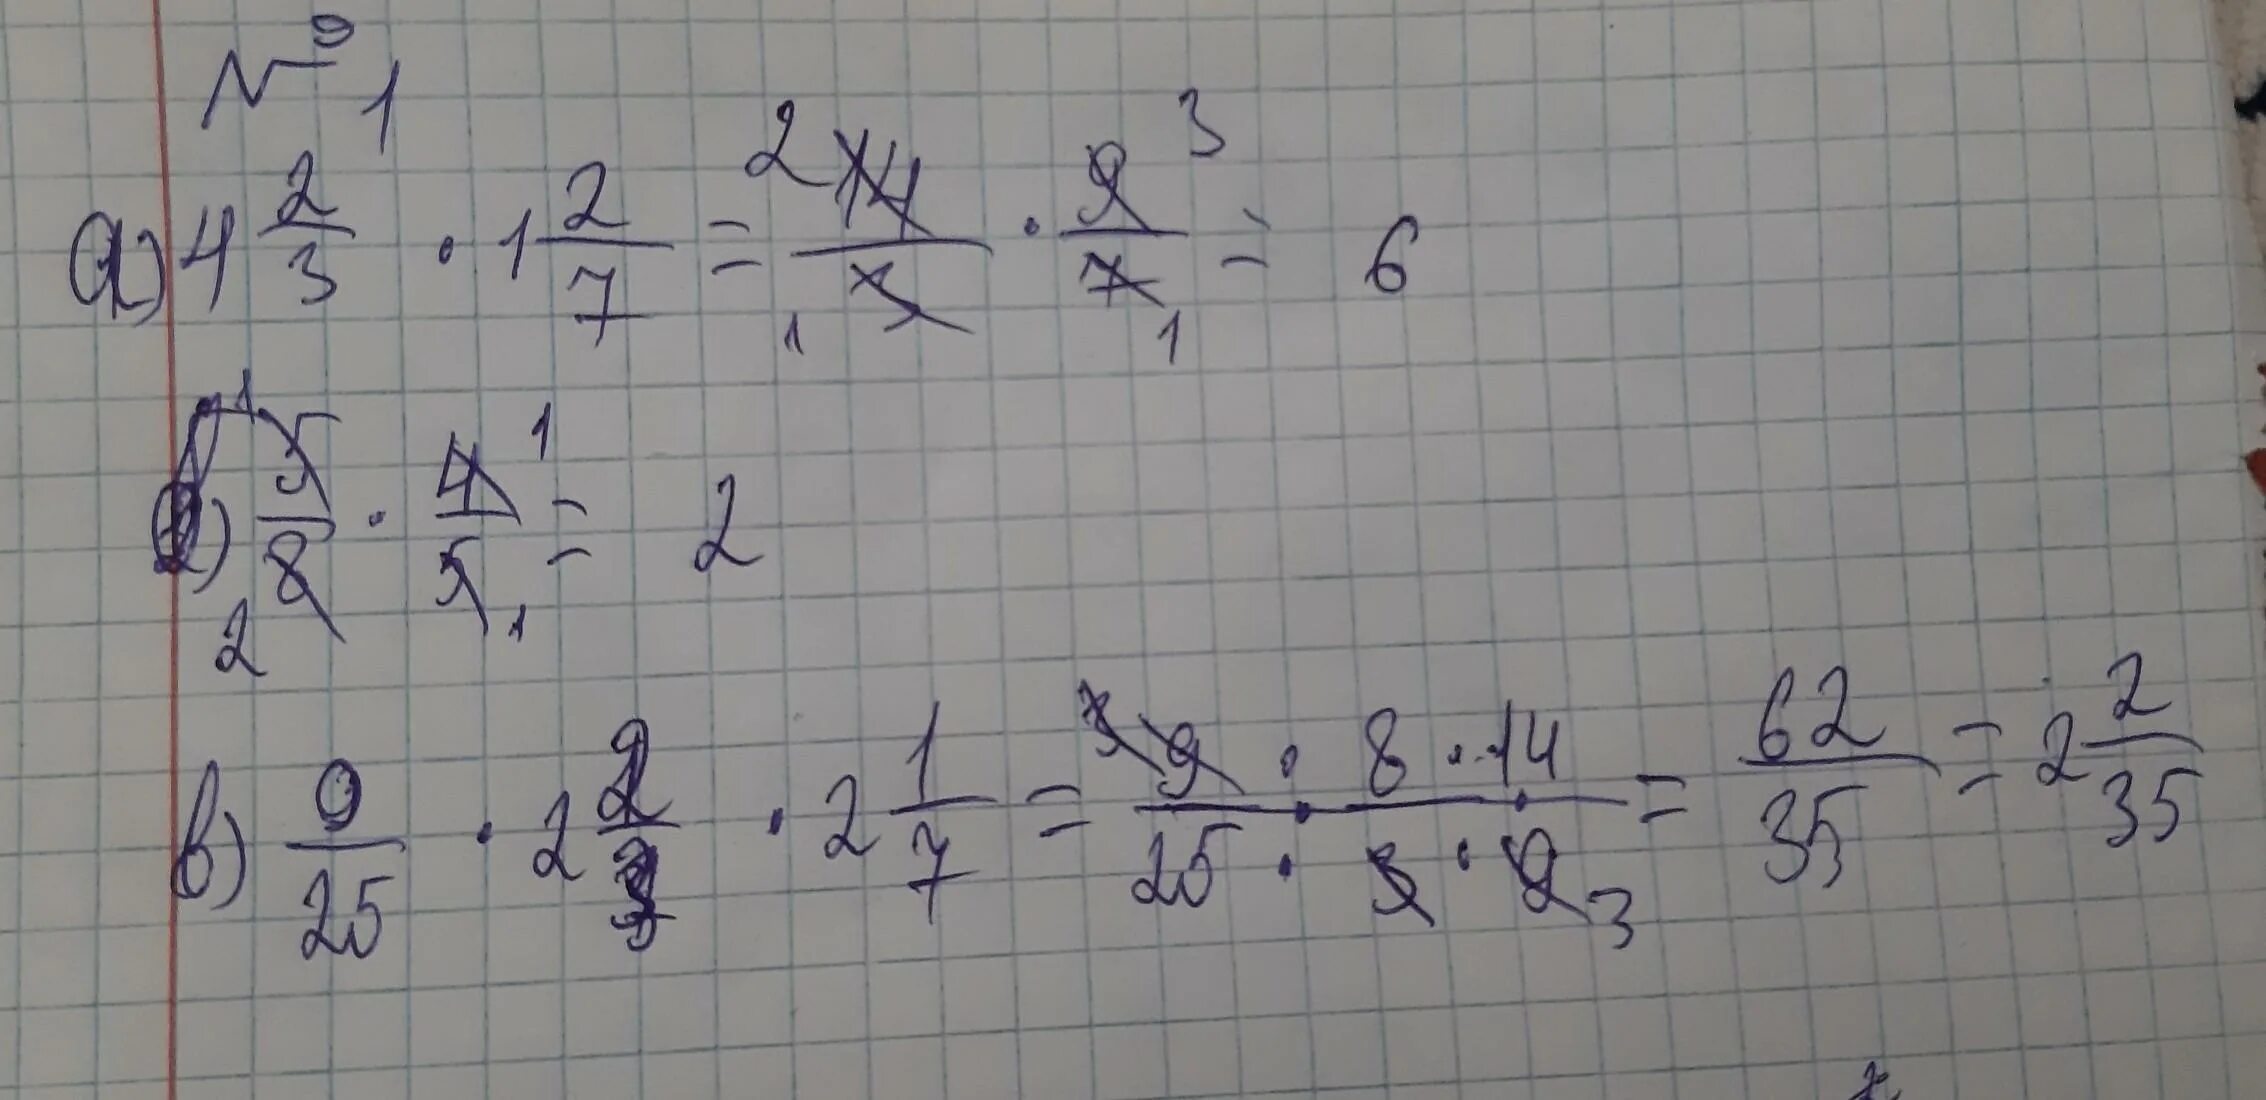 № 1
а) 4 2/3 · 1 2/7 = 2 14/3 1 · 9/7 3 1 = 6
1 5/8 2 · 4/5 1 1 = 2
в) 9/25 · 2 2/3 · 2 1/7 = 9 · 8 · 14 / 25 · 3 · 9 3 = 62/35 = 2 2/35